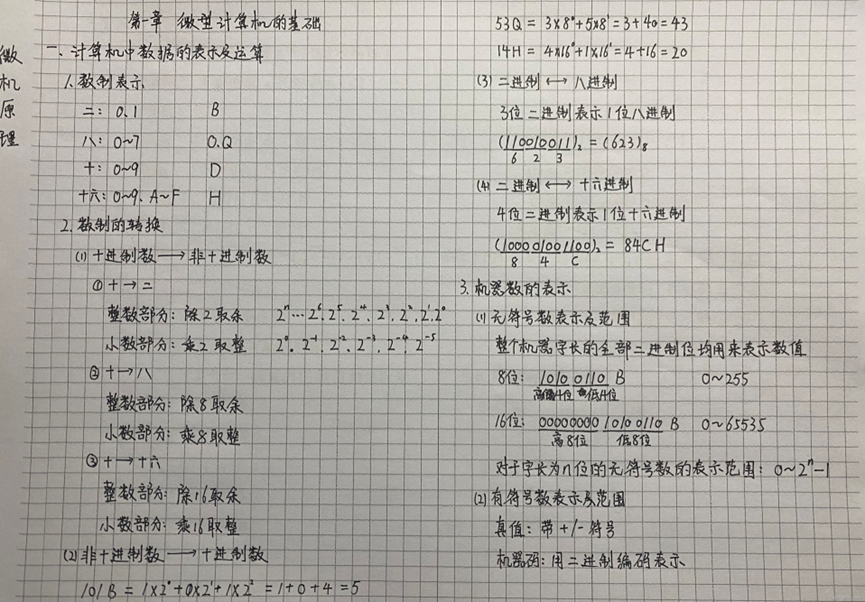 微机原理
第一章 微型计算机的基础
一、计算机中数据的表示及运算
1. 数制表示
二: 0.1 B
八: 0~7 O.Q
十: 0~9 D
十六: 0~9. A~F H
2. 数制的转换
(1) 十进制数 → 非十进制数
① 十 → 二
整数部分: 除2取余 2ⁿ…2⁶. 2⁵. 2⁴. 2³. 2². 2¹. 2⁰
小数部分: 乘2取整 2⁰. 2⁻¹. 2⁻². 2⁻³. 2⁻⁴. 2⁻⁵
② 十 → 八
整数部分: 除8取余
小数部分: 乘8取整
③ 十 → 十六
整数部分: 除16取余
小数部分: 乘16取整
(2) 非十进制数 → 十进制数
101B = 1×2⁰+0×2¹+1×2² = 1+0+4 = 5
53Q = 3×8⁰+5×8¹ = 3+40 = 43
14H = 4×16⁰+1×16¹ = 4+16 = 20
(3) 二进制 ↔ 八进制
3位二进制表示1位八进制
(110010011)₂ = (623)₈
6 2 3
(4) 二进制 ↔ 十六进制
4位二进制表示1位十六进制
(100001001100)₂ = 84CH
8 4 C
3. 机器数的表示
(1) 无符号数表示及范围
整个机器字长的全部二进制位均用来表示数值
8位: 1010 0110 B 0~255
高4位 低4位
16位: 00000000 10100110 B 0~65535
高8位 低8位
对于字长为n位的无符号数的表示范围: 0~2ⁿ-1
(2) 有符号数表示及范围
真值: 带+/-符号
机器码: 用二进制编码表示